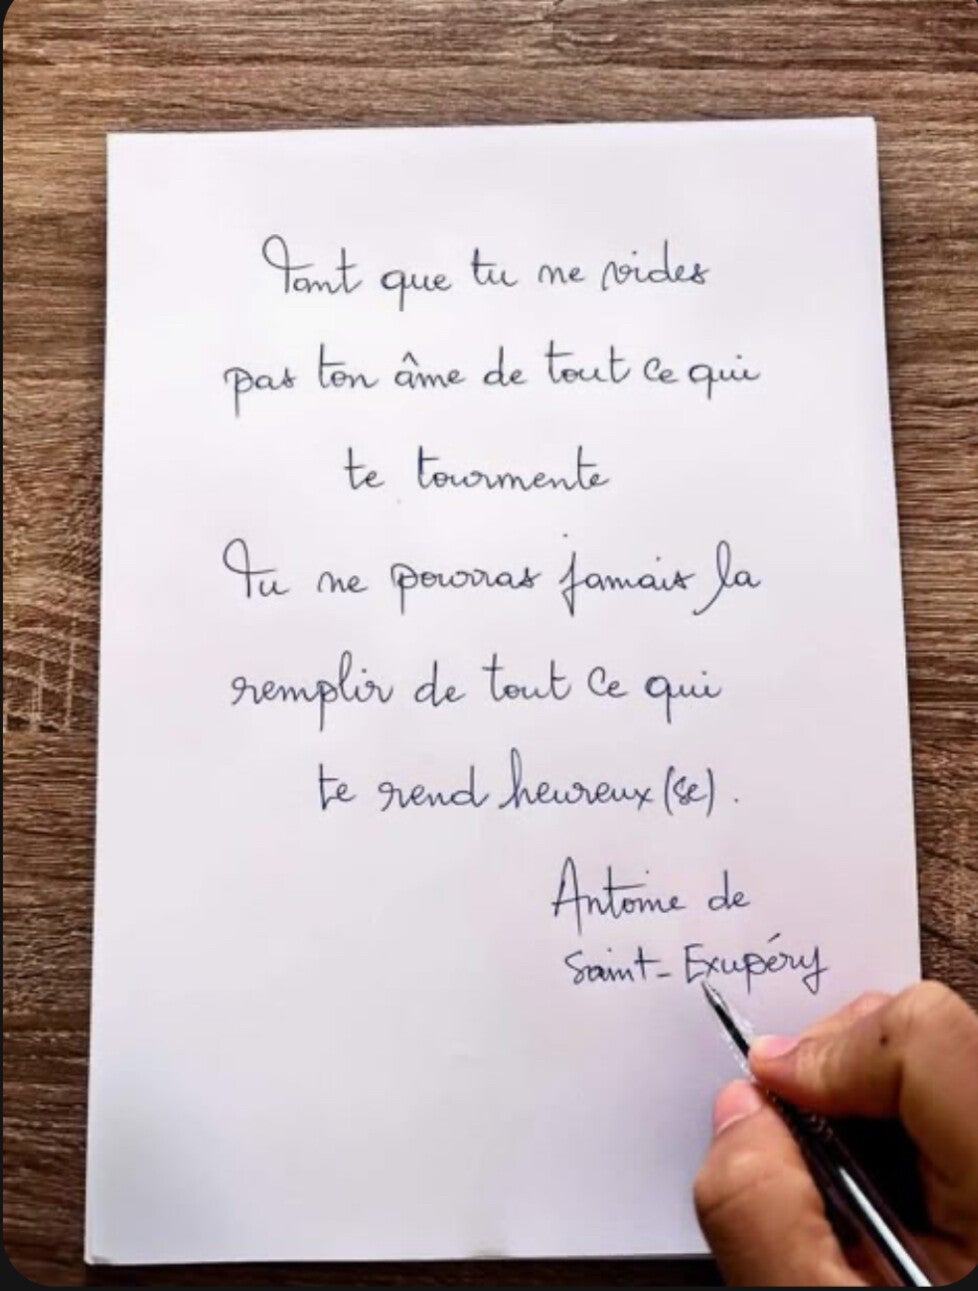 Tant que tu ne vides
pas ton âme de tout ce qui
te tourmente
Tu ne pourras jamais la
remplir de tout ce qui
te rend heureux (se).
Antoine de
Saint-Exupéry